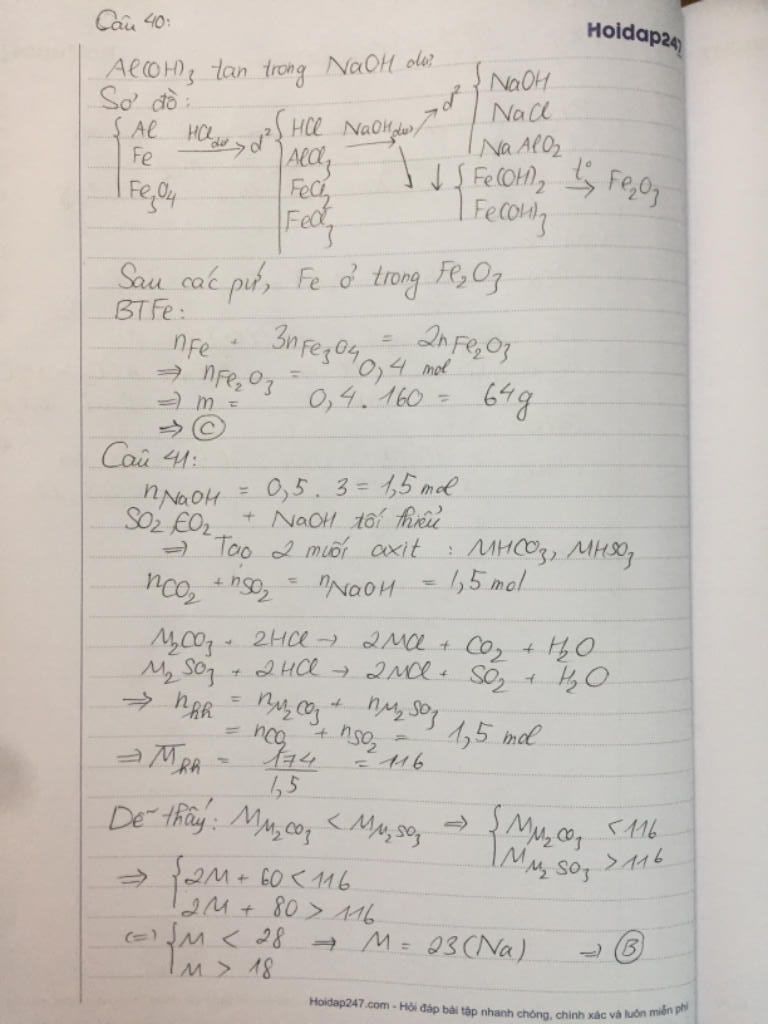 Câu 40:
Hoidap247
Al(OH)3 tan trong NaOH dư
Sơ đồ:
{ Al
Fe
Fe3O4
HCl dư →
d² { HCl
AlCl3
FeCl2
FeCl3
NaOH dư →
↗ d² { NaOH
NaCl
NaAlO2
↘ ↓ { Fe(OH)2
Fe(OH)3
t° → Fe2O3
Sau các pứ, Fe ở trong Fe2O3
BTFe:
nFe + 3nFe3O4 = 2nFe2O3
⇒ nFe2O3 = 0,4 mol
⇒ m = 0,4 . 160 = 64g
⇒ C
Câu 41:
nNaOH = 0,5 . 3 = 1,5 mol
SO2, CO2 + NaOH tối thiểu
⇒ Tạo 2 muối axit : MHCO3, MHSO3
nCO2 + nSO2 = nNaOH = 1,5 mol
M2CO3 + 2HCl → 2MCl + CO2 + H2O
M2SO3 + 2HCl → 2MCl + SO2 + H2O
⇒ nhh = nM2CO3 + nM2SO3
= nCO2 + nSO2 = 1,5 mol
⇒ M̅hh = 174/1,5 = 116
Dễ thấy: MM2CO3 < MM2SO3 ⇒ { MM2CO3 < 116
MM2SO3 > 116
⇒ { 2M + 60 < 116
2M + 80 > 116
(=) { M < 28 ⇒ M = 23 (Na) ⇒ B
M > 18
Hoidap247.com - Hỏi đáp bài tập nhanh chóng, chính xác và luôn miễn phí